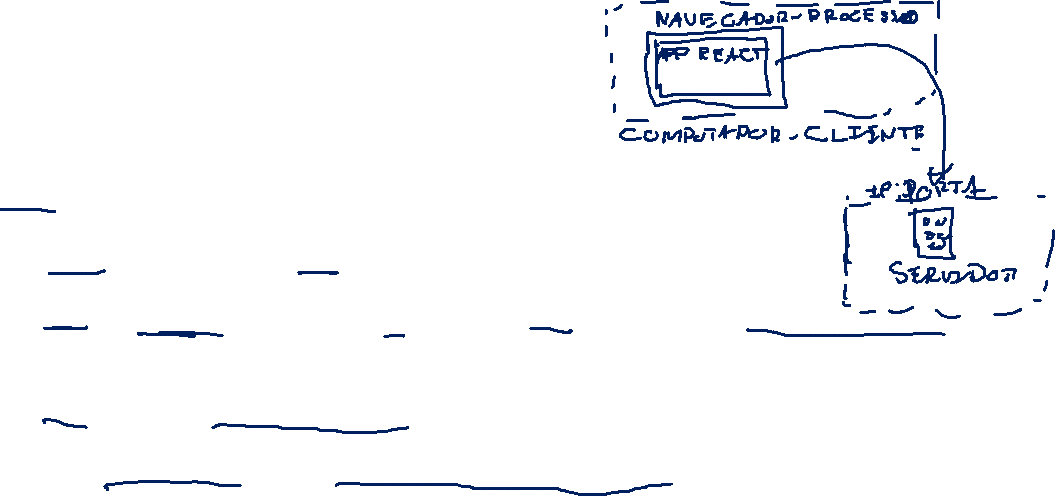 NAVEGADOR-PROCESSO
APP REACT
COMPUTADOR-CLIENTE
IP:PORTA
SERVIDOR